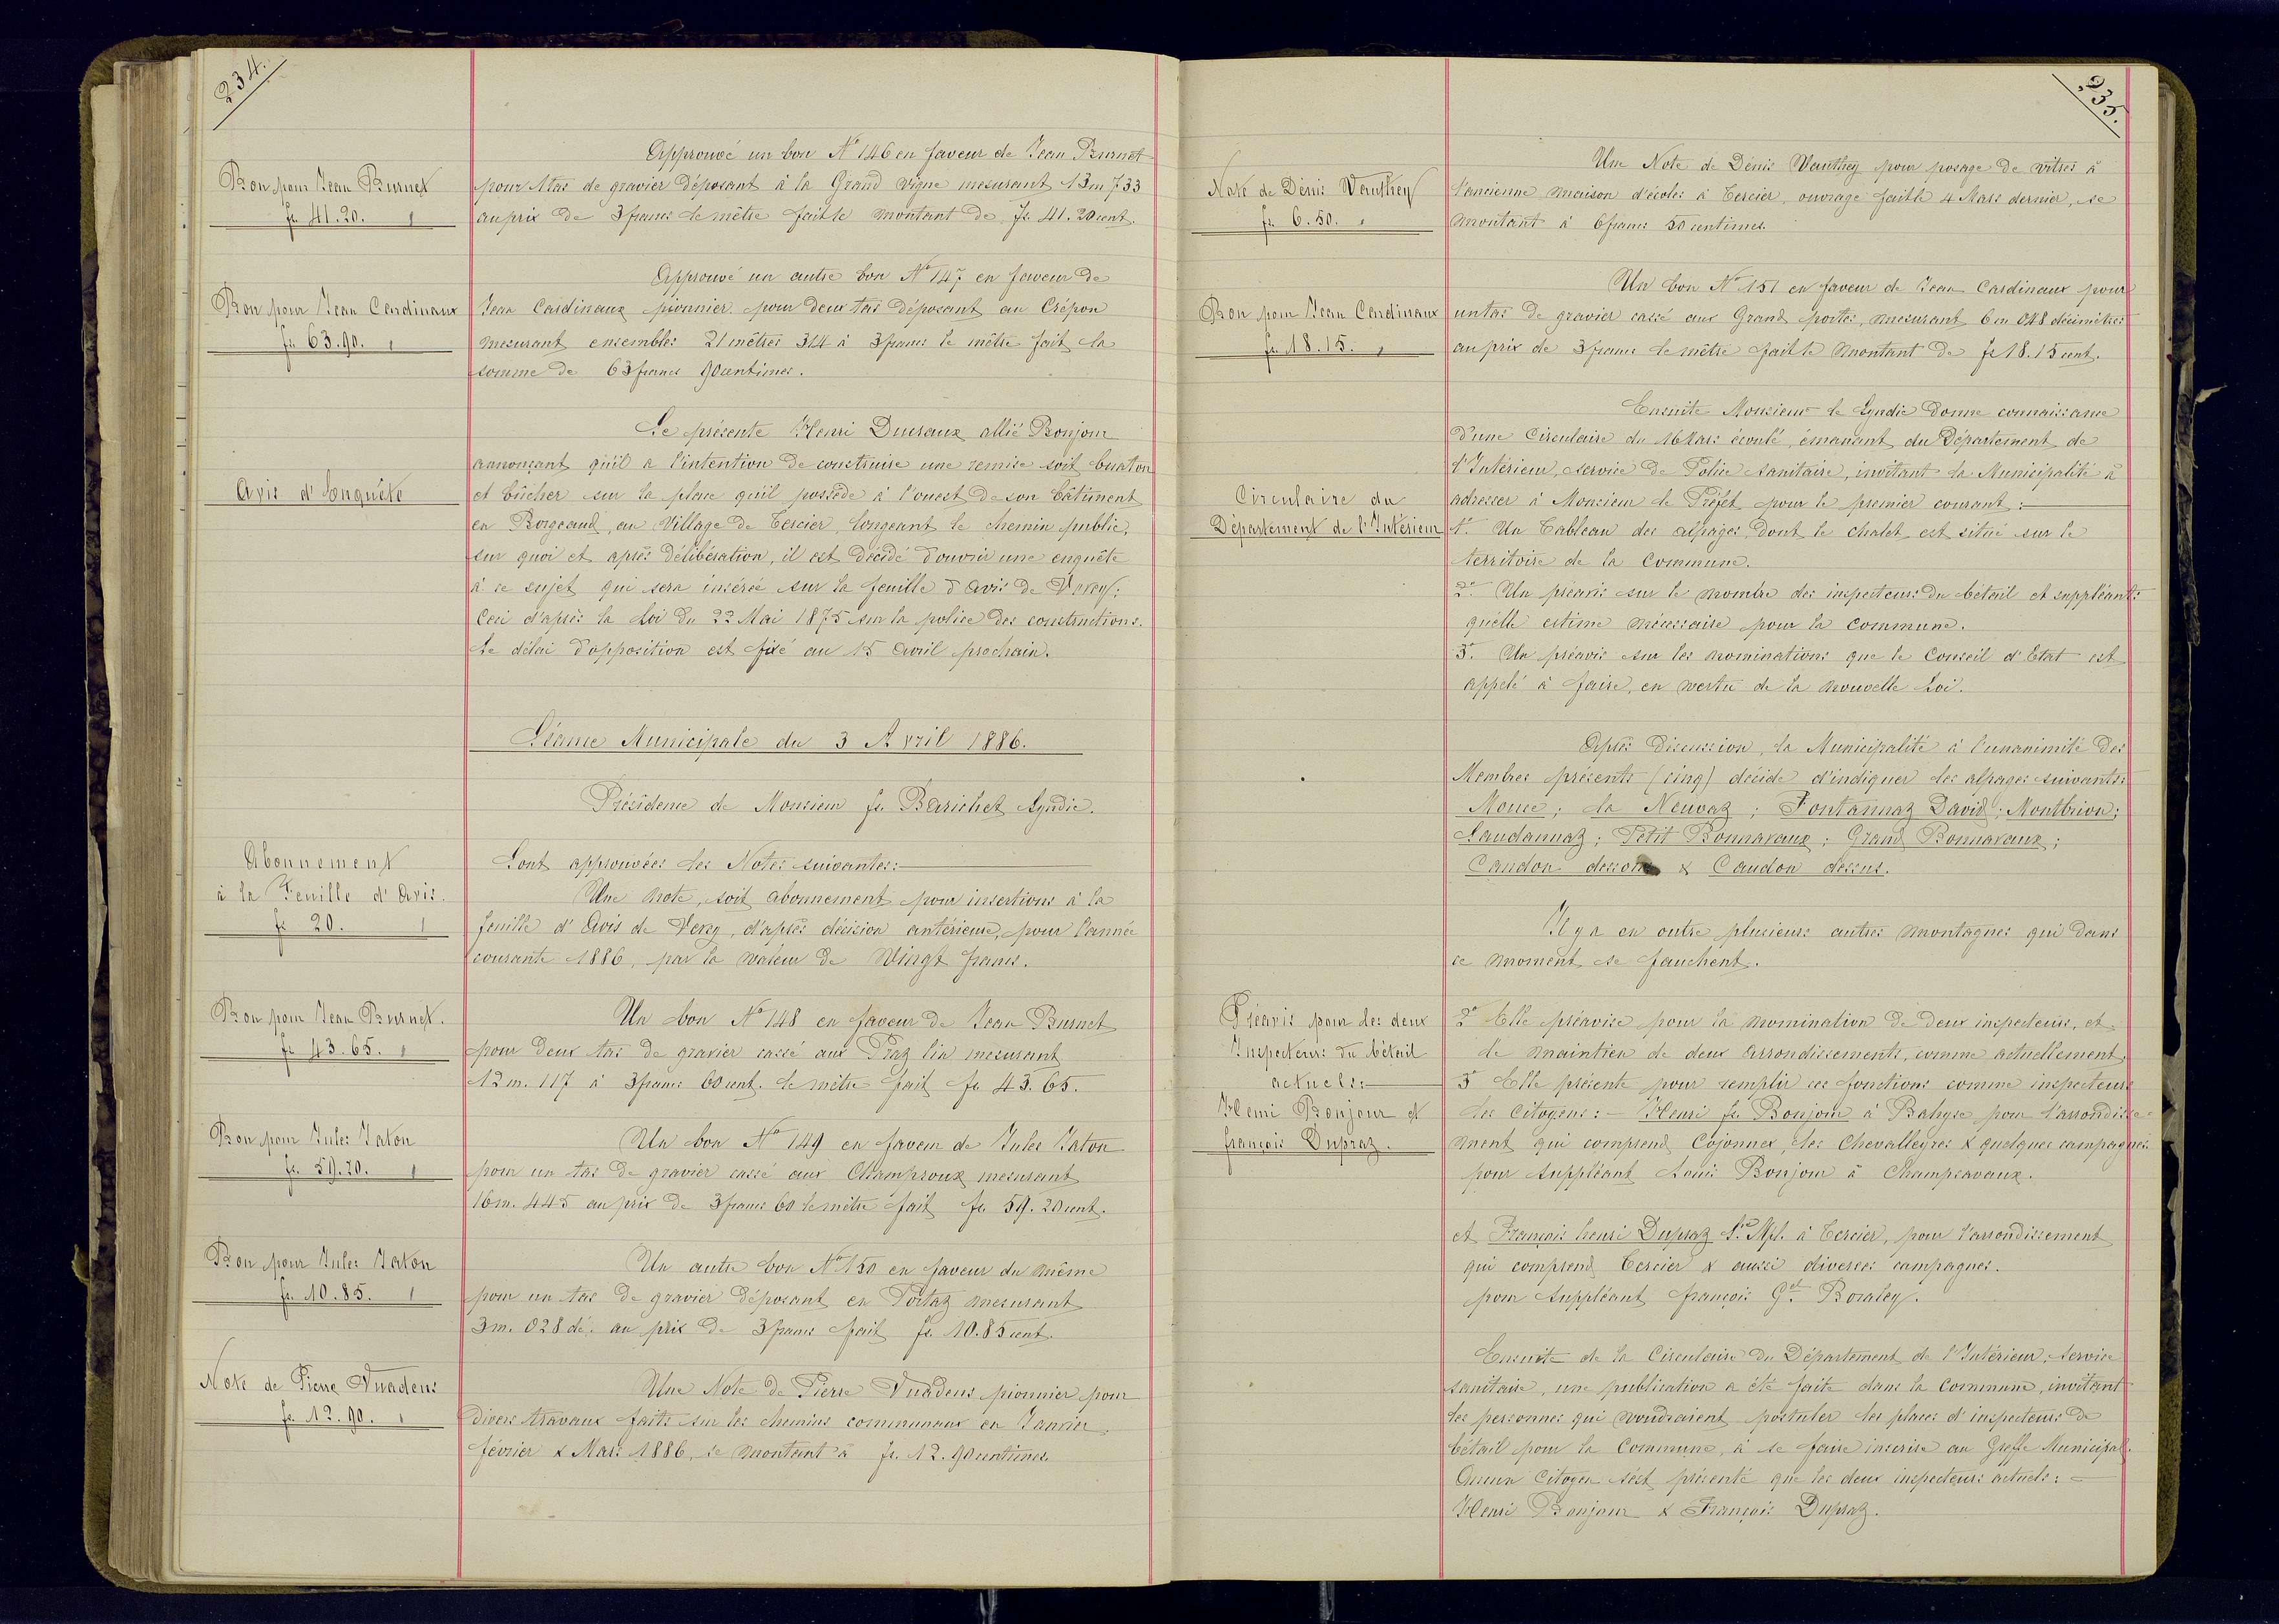 234.
Approuvé un bon No 146 en faveur de Jean Burnet
Bon pour Jean Burnet
fr. 41.20. "
pour 1 tas de gravier déposant à la Grand vigne mesurant 13m 733
au prix de 3 francs le mêtre fait le montant de fr. 41.20 cent.
Approuvé un autre bon No 147 en faveur de
Bon pour Jean Cardinaux
fr. 63.90. "
Jean Cardinaux pionnier pour deux tas déposant au Crépon
mesurant ensembles 21 mêtres 314 à 3 francs le mêtre fait la
somme de 63 francs 90 centimes.
Se présente Henri Ducraux allié Bonjour
annonçant qu'il a l'intention de construire une remise soit buaton
Avis d'Enquête
et bûcher sur la place qu'il possède à l'ouest de son bâtiment
en Borgeaud, au Village de Tercier, longeant le chemin public,
sur quoi et après délibération, il est décidé d'ouvrir une enquête
à ce sujet qui sera insérée sur la feuille d'Avis de Vevey;
Ceci d'après la Loi du 22 Mai 1875 sur la police des constructions.
Le délai d'opposition est fixé au 15 Avril prochain.
Séance Municipale du 3 Avril 1886.
Présidence de Monsieur fs. Barichet Syndic.
Abonnement
à la Feuille d'Avis.
fr. 20. "
Sont approuvées les Notes suivantes:
Une note, soit abonnement pour insertions à la
feuille d'Avis de Vevey, d'après décision antérieure, pour l'année
courante 1886, par la valeur de Vingt francs.
Bon pour Jean Burnet.
fr. 43.65. "
Un bon No 148 en faveur de Jean Burnet
pour deux tas de gravier cassé aux Praz lin mesurant
12 m. 117 à 3 francs 60 cent. le mêtre fait fr. 43.65.
Bon pour Jules Jaton
fr. 59.20. "
Un bon No 149 en faveur de Jules Jaton
pour un tas de gravier cassé aux Champroux mesurant
16 m. 445 au prix de 3 francs 60 le mêtre fait fr. 59.20 cent.
Bon pour Jules Jaton
fr. 10.85. "
Un autre bon No 150 en faveur du même
pour un tas de gravier déposant en Portaz mesurant
3 m. 028 dé. au prix de 3 francs fait fr. 10.85 cent.
Note de Pierre Vuadens
fr. 12.90. "
Une Note de Pierre Vuadens pionnier pour
divers travaux faits sur les chemins communaux en Janvier,
février & Mars 1886, se montant à fr. 12.90 centimes.
235.
Une Note de Dénis Vauthey pour posage de vitres à
Note de Dénis Vauthey
fr. 6.50. "
l'ancienne maison d'écoles à Tercier, ouvrage fait le 4 Mars dernier, se
montant à 6 francs 50 centimes.
Un bon No 151 en faveur de Jean Cardinaux pour
Bon pour Jean Cardinaux
fr. 18.15. "
un tas de gravier cassé aux Grand portes, mesurant 6 m 048 décimêtres
au prix de 3 francs le mêtre fait le montant de fr 18.15 cent.
Ensuite Monsieur le Syndic donne connaissance
d'une Circulaire du 16 Mars écoulé, émanant du Département de
l'Intérieur, service de Police sanitaire, invitant la Municipalité à
Circulaire du
Département de l'Intérieur
adresser à Monsieur le Préfet pour le premier courant:
1o. Un Tableau des alpages dont le chalet est situé sur le
territoire de la Commune.
2o. Un préavis sur le nombre des inspecteurs du bétail et suppléants
qu'elle estime nécessaire pour la Commune.
3o. Un préavis sur les nominations que le Conseil d'Etat est
appelé à faire, en vertu de la nouvelle Loi.
Après discussion, la Municipalité à l'unanimité des
Membres présents (cinq) décide d'indiquer les alpages suivants:
Mouce; la Neuvaz; Fontannaz David; Montbrion;
Saudannaz; Petit Bonnavaux; Grand Bonnavaux;
Caudon dessous & Caudon dessus.
Il y a en outre plusieurs autres montagnes qui dans
ce moment se fauchent.
Préavis pour les deux
Inspecteurs du bétail
actuels:
Henri Bonjour et
françois Dupraz.
2o Elle préavise pour la nomination de deux inspecteurs, et
de maintien de deux arrondissements, comme actuellement;
3o Elle présente pour remplir ces fonctions comme inspecteurs
les Citoyens: Henri fs. Bonjour à Bahyse pour l'arrondisse=
ment qui comprend Cojonnex, les Chevalleyres & quelques campagnes.
pour suppléant Louis Bonjour à Champsavaux.
et François henri Dupraz Sre. Mpl. à Tercier, pour l'arrondissement
qui comprend Tercier & aussi diverses campagnes.
pour suppléant françois Gel. Boraley.
Ensuite de la Circulaire du Département de l'Intérieur, service
sanitaire, une publication a été faite dans la Commune, invitant
les personnes qui voudraient postuler les places d'inspecteurs de
bétail pour la Commune, à se faire inscrire au Greffe Municipal.
Aucun Citoyen s'est présenté que les deux inspecteurs actuels:
Henri Bonjour & François Dupraz.